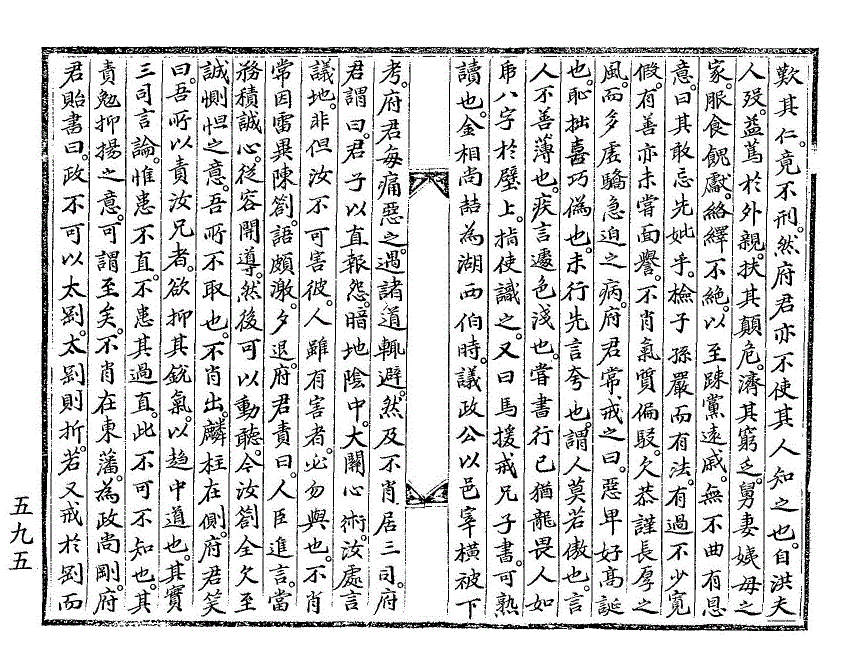 歎其仁。竟不刑。然府君亦不使其人知之也。自洪夫
人歿。益篤於外親。扶其顚危。濟其窮乏。舅妻姨母之
家。服食餽獻。絡繹不絶。以至踈黨遠戚。無不曲有恩
意。曰其敢忘先妣乎。檢子孫嚴而有法。有過不少寬
假。有善亦未嘗面譽。不肖氣質偏駁。欠恭謹長厚之
風。而多麤驕急迫之病。府君常戒之曰。惡卑好高誕
也。恥拙喜巧僞也。未行先言夸也。謂人莫若傲也。言
人不善薄也。疾言遽色淺也。嘗書行己猶龍畏人如
帍八字於壁上。指使識之。又曰馬援戒兄子書。可熟
讀也。金相尙喆爲湖西伯時。議政公以邑宰橫被下
考。府君每痛惡之。遇諸道輒避。然及不肖居三司。府
君謂曰。君子以直報怨。暗地陰中。大關心術。汝處言
議地。非但汝不可害彼。人雖有害者。必勿與也。不肖
常因雷異陳箚。語頗激。夕退。府君責曰。人臣進言。當
務積誠心。從容開導。然後可以動聽。今汝箚全欠至
誠惻怛之意。吾所不取也。不肖出。麟柱在側。府君笑
曰。吾所以責汝兄者。欲抑其銳氣。以趨中道也。其實
三司言論。惟患不直。不患其過直。此不可不知也。其
責勉抑揚之意。可謂至矣。不肖在東藩。爲政尙剛。府
君貽書曰。政不可以太剛。太剛則折。若又戒於剛而
五九五